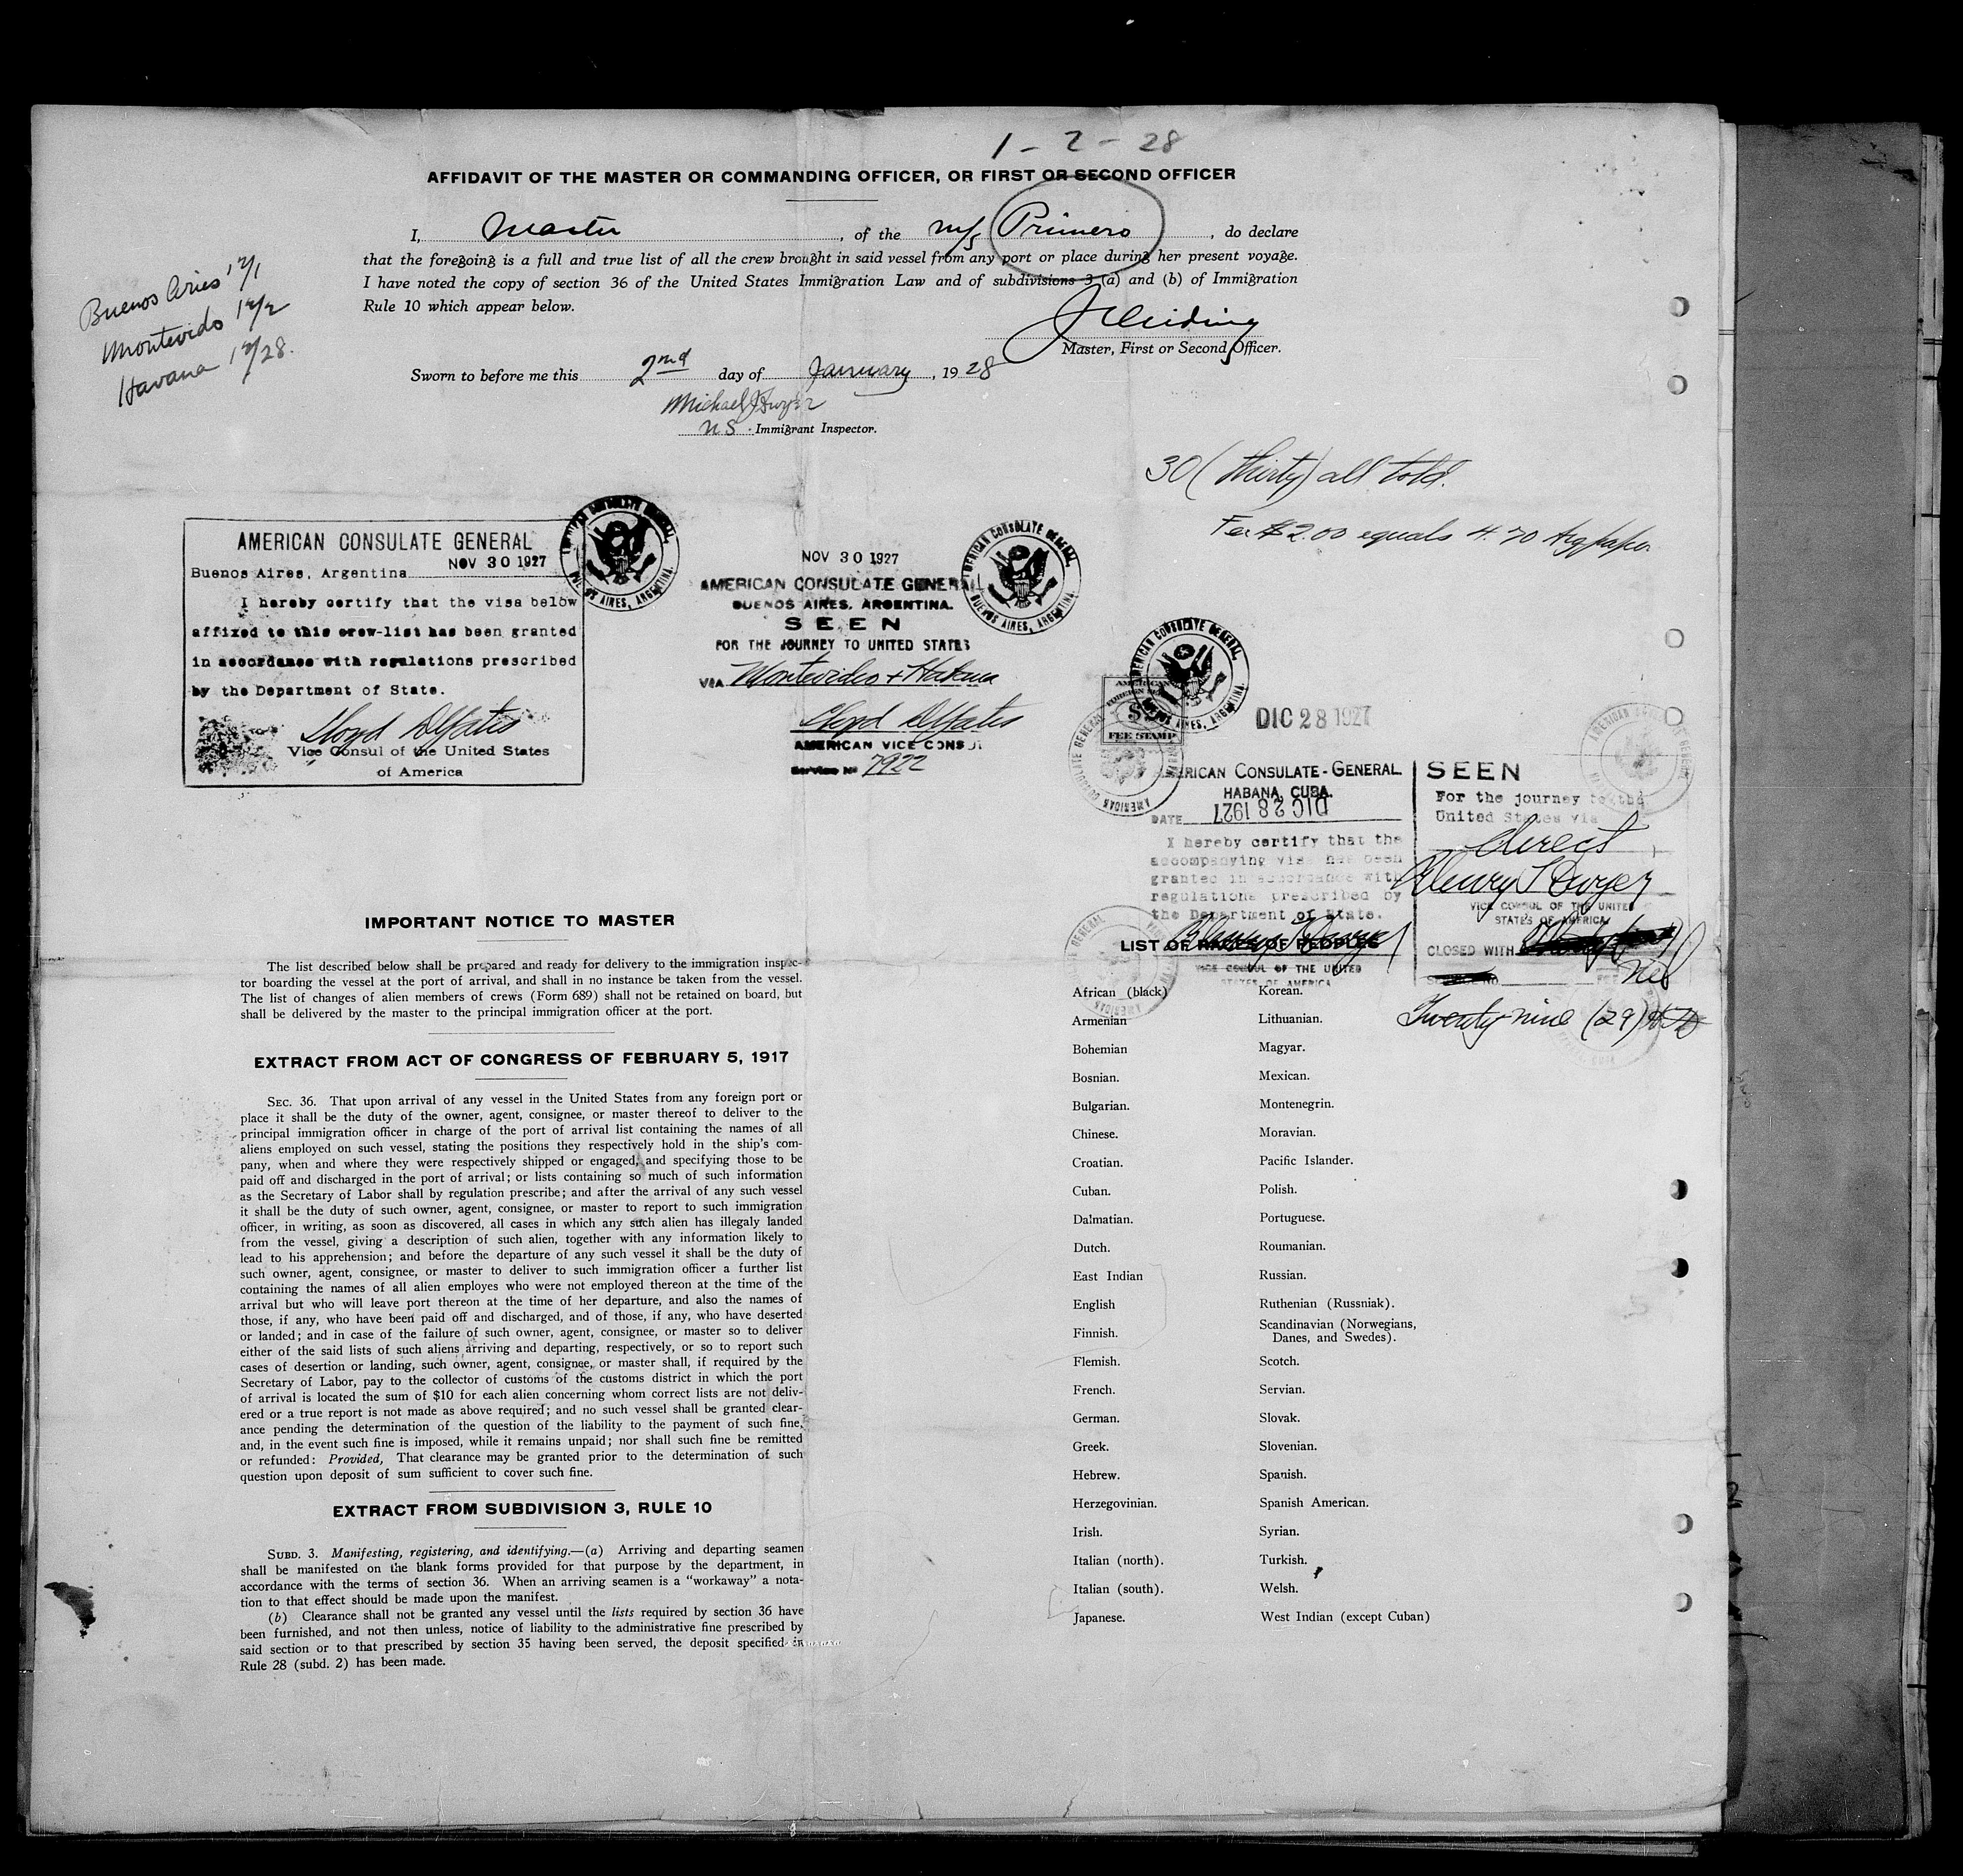 1 - 2 - 28
AFFIDAVIT OF THE MASTER OR COMMANDING OFFICER, OR FIRST OR SECOND OFFICER
I, Master, of the m/s Primero, do declare
that the foregoing is a full and true list of all the crew brought in said vessel from any port or place during her present voyage.
I have noted the copy of section 36 of the United States Immigration Law and of subdivisions 3 (a) and (b) of Immigration
Rule 10 which appear below.
Master, First or Second Officer.
Sworn to before me this 2nd day of January, 1928
Michael
Immigrant Inspector.
Buenos Aires 12/1
Montevido 12/2
Havana 12/28.
30 (thirty) all told.
Fee $2.00 equals 4.70
AMERICAN CONSULATE GENERAL
Buenos Aires, Argentina NOV 30 1927
I hereby certify that the visa below
affixed to this crew-list has been granted
in accordance with regulations prescribed
by the Department of State.
Lloyd D Yates
Vice Consul of the United States
of America
AMERICAN CONSULATE GENERAL
BUENOS AIRES, ARGENTINA.
NOV 30 1927
AMERICAN CONSULATE GENERAL
BUENOS AIRES, ARGENTINA.
SEEN
FOR THE JOURNEY TO UNITED STATES
VIA Montevideo + Habana
Lloyd D Yates
AMERICAN VICE CONSUL
Service No 7922
AMERICAN CONSULATE GENERAL
BUENOS AIRES, ARGENTINA.
AMERICAN CONSULATE GENERAL,
BUENOS AIRES, ARGENTINA.
AMERICAN
FEE STAMP
DIC 28 1927
AMERICAN CONSULATE-GENERAL
HABANA, CUBA.
DATE DIC 28 1927
I hereby certify that the
accompanying visa has been
granted in accordance with
regulations prescribed by
the Department of State.
VICE CONSUL OF THE UNITED
STATES OF AMERICA
SEEN
For the journey to the
United States via
direct
Henry T Dwyer
VICE CONSUL OF THE UNITED
STATES OF AMERICA
CLOSED WITH
Twenty-nine (29)
IMPORTANT NOTICE TO MASTER
The list described below shall be prepared and ready for delivery to the immigration inspec-
tor boarding the vessel at the port of arrival, and shall in no instance be taken from the vessel.
The list of changes of alien members of crews (Form 689) shall not be retained on board, but
shall be delivered by the master to the principal immigration officer at the port.
EXTRACT FROM ACT OF CONGRESS OF FEBRUARY 5, 1917
SEC. 36. That upon arrival of any vessel in the United States from any foreign port or
place it shall be the duty of the owner, agent, consignee, or master thereof to deliver to the
principal immigration officer in charge of the port of arrival list containing the names of all
aliens employed on such vessel, stating the positions they respectively hold in the ship's com-
pany, when and where they were respectively shipped or engaged, and specifying those to be
paid off and discharged in the port of arrival; or lists containing so much of such information
as the Secretary of Labor shall by regulation prescribe; and after the arrival of any such vessel
it shall be the duty of such owner, agent, consignee, or master to report to such immigration
officer, in writing, as soon as discovered, all cases in which any such alien has illegaly landed
from the vessel, giving a description of such alien, together with any information likely to
lead to his apprehension; and before the departure of any such vessel it shall be the duty of
such owner, agent, consignee, or master to deliver to such immigration officer a further list
containing the names of all alien employes who were not employed thereon at the time of the
arrival but who will leave port thereon at the time of her departure, and also the names of
those, if any, who have been paid off and discharged, and of those, if any, who have deserted
or landed; and in case of the failure of such owner, agent, consignee, or master so to deliver
either of the said lists of such aliens arriving and departing, respectively, or so to report such
cases of desertion or landing, such owner, agent, consignee, or master shall, if required by the
Secretary of Labor, pay to the collector of customs of the customs district in which the port
of arrival is located the sum of $10 for each alien concerning whom correct lists are not deliv-
ered or a true report is not made as above required; and no such vessel shall be granted clear-
ance pending the determination of the question of the liability to the payment of such fine,
and, in the event such fine is imposed, while it remains unpaid; nor shall such fine be remitted
or refunded: Provided, That clearance may be granted prior to the determination of such
question upon deposit of sum sufficient to cover such fine.
EXTRACT FROM SUBDIVISION 3, RULE 10
SUBD. 3. Manifesting, registering, and identifying.—(a) Arriving and departing seamen
shall be manifested on the blank forms provided for that purpose by the department, in
accordance with the terms of section 36. When an arriving seamen is a "workaway" a nota-
tion to that effect should be made upon the manifest.
(b) Clearance shall not be granted any vessel until the lists required by section 36 have
been furnished, and not then unless, notice of liability to the administrative fine prescribed by
said section or to that prescribed by section 35 having been served, the deposit specified in
Rule 28 (subd. 2) has been made.
LIST OF RACES OF PEOPLES
African (black)
Armenian
Bohemian
Bosnian.
Bulgarian.
Chinese.
Croatian.
Cuban.
Dalmatian.
Dutch.
East Indian
English
Finnish.
Flemish.
French.
German.
Greek.
Hebrew.
Herzegovinian.
Irish.
Italian (north).
Italian (south).
Japanese.
Korean.
Lithuanian.
Magyar.
Mexican.
Montenegrin.
Moravian.
Pacific Islander.
Polish.
Portuguese.
Roumanian.
Russian.
Ruthenian (Russniak).
Scandinavian (Norwegians,
Danes, and Swedes).
Scotch.
Servian.
Slovak.
Slovenian.
Spanish.
Spanish American.
Syrian.
Turkish.
Welsh.
West Indian (except Cuban)